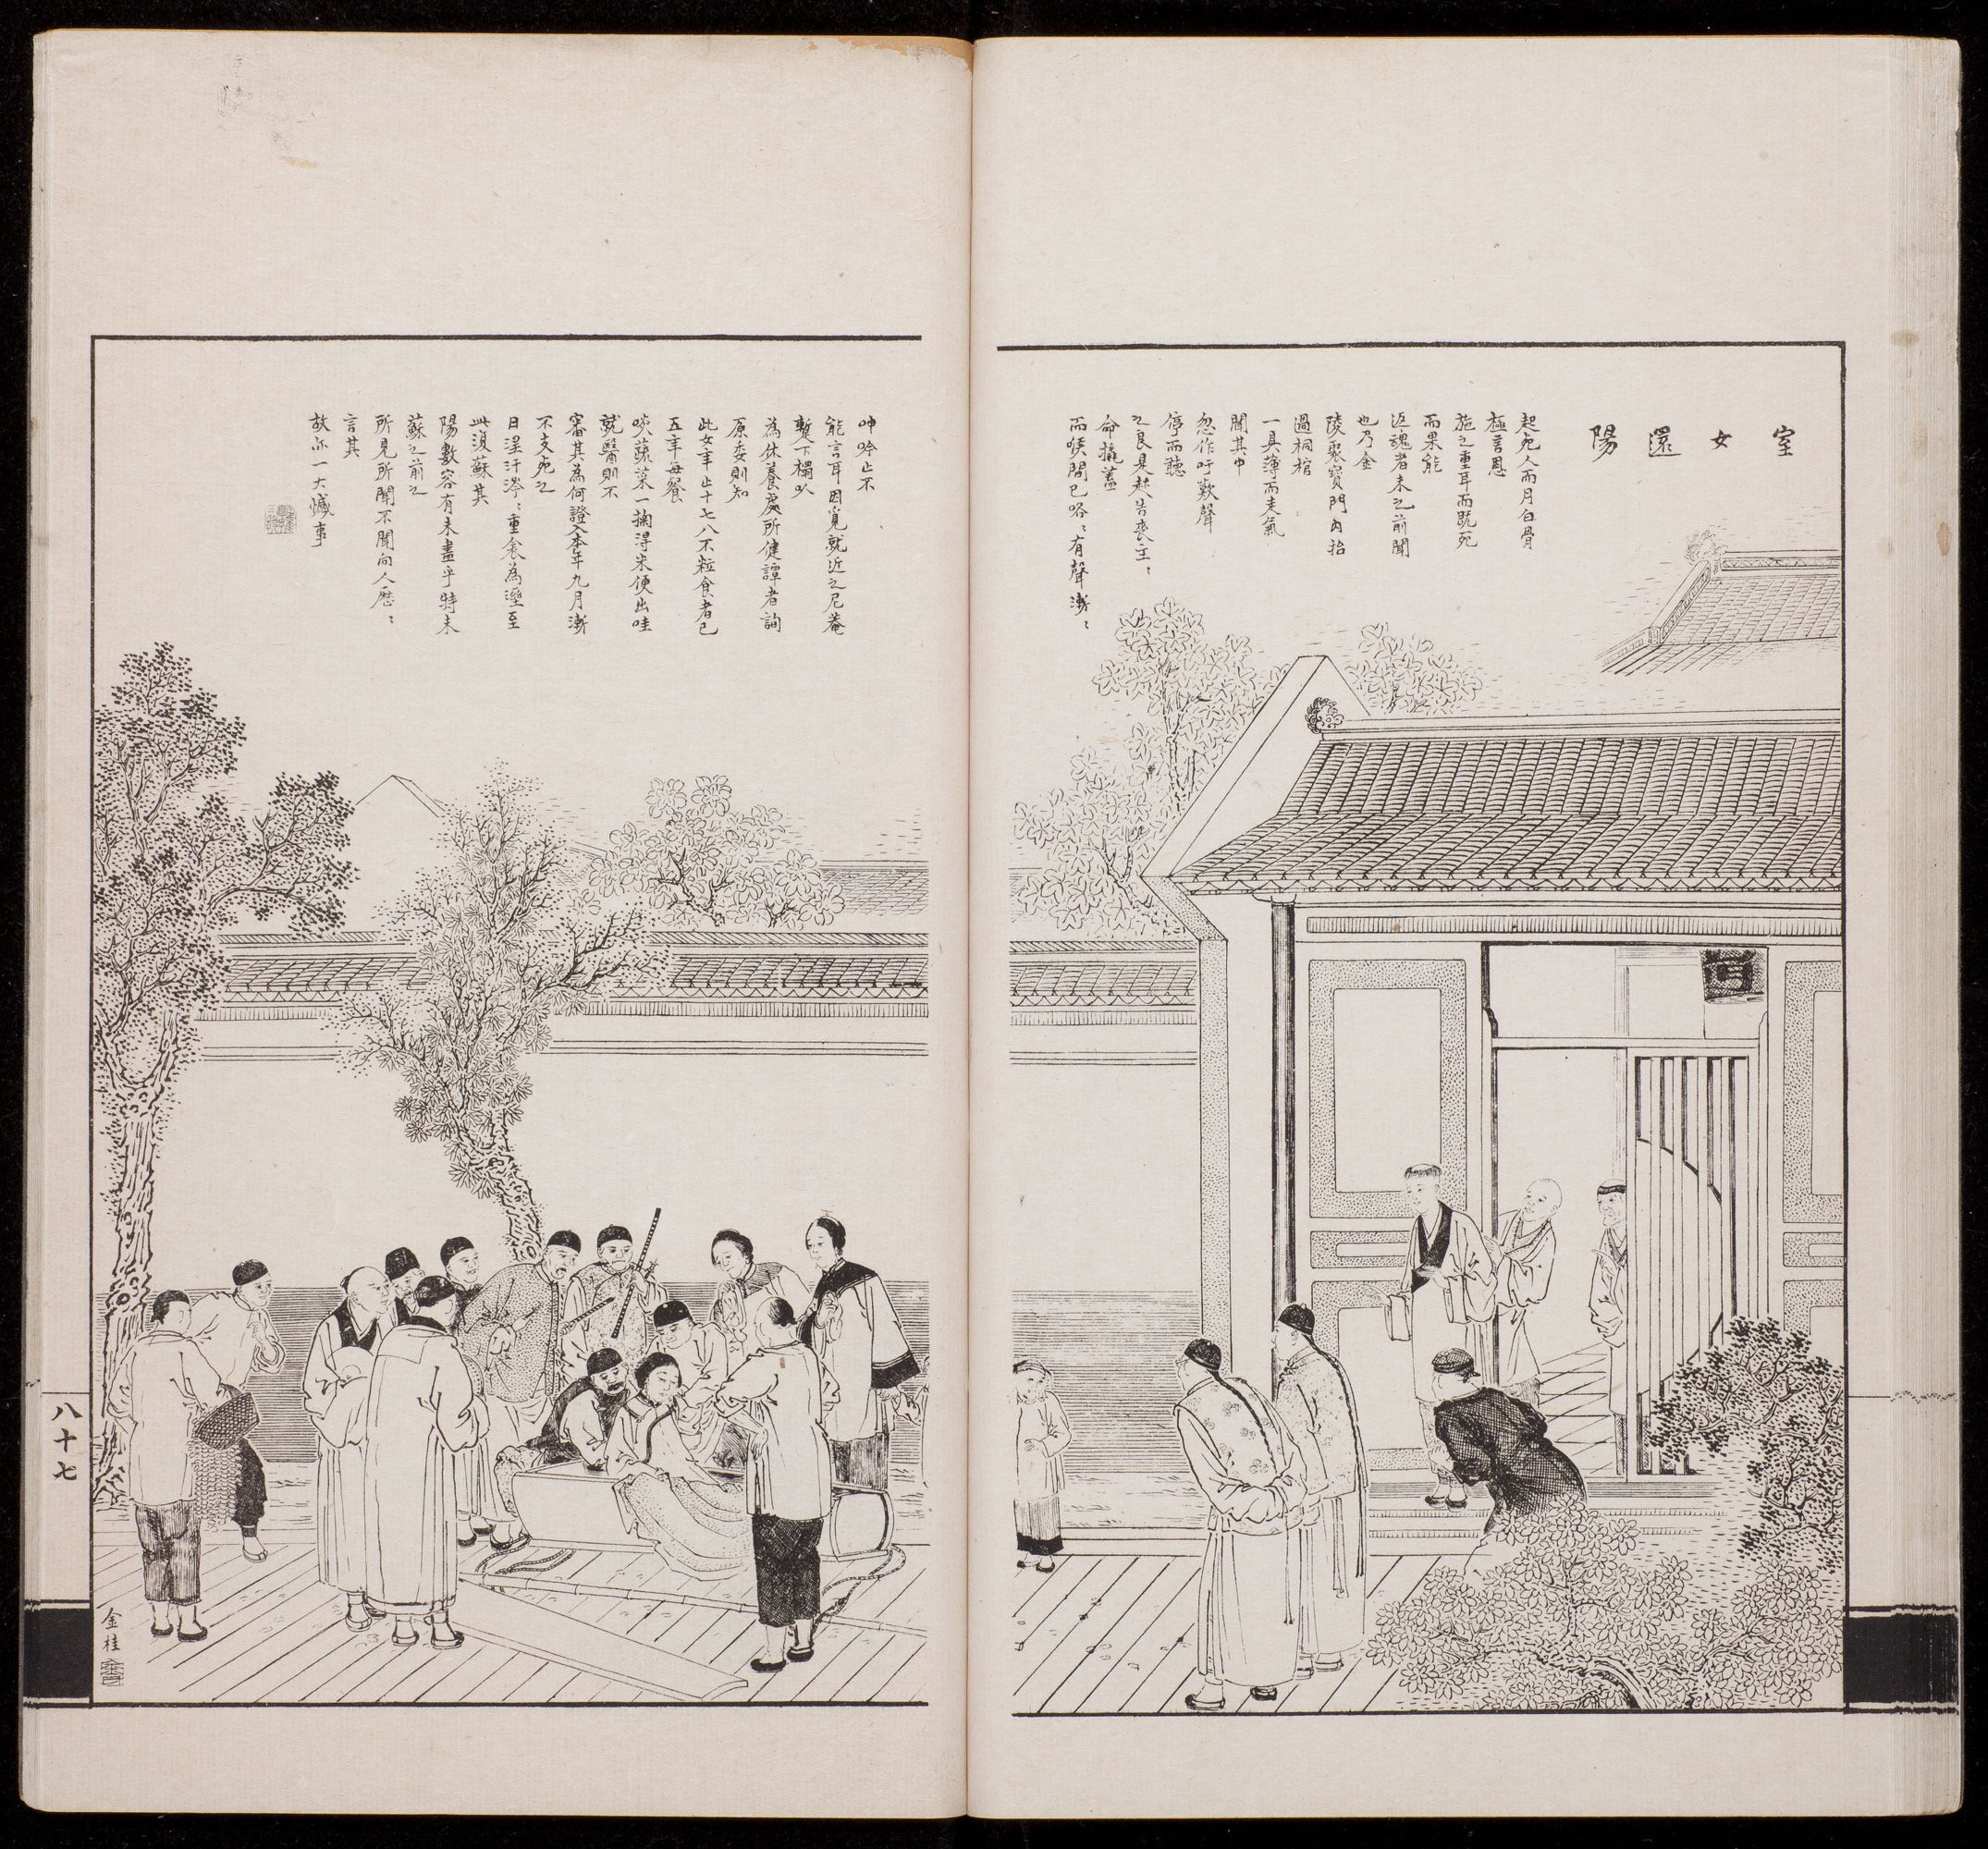 室女還陽
起死人而肉白骨
極言恩
施之重耳而既死
而果能
返魂者未之前聞
也乃金
陵聚寶門內抬
過桐棺
一具薄而未氣
聞其中
忽作吁歎聲
停而聽
之良是趍告喪主:
命撬蓋
而喉間已咯:有聲漸:
呻吟止不
能言耳因覓就近之尼菴
蹔下榻以
為休養處所健譚者詢
原委則知
此女年止十七八不粒食者已
五年每餐
啖蔬菜一掬得米便出哇
就醫則不
審其為何證入本年九月漸
不支死之
日淫汗涔:重衾為溼至
此復蘇其
陽數容有未盡乎特未
蘇之前之
所見所聞不聞向人歷:
言其
故亦一大憾事
金桂
八十七